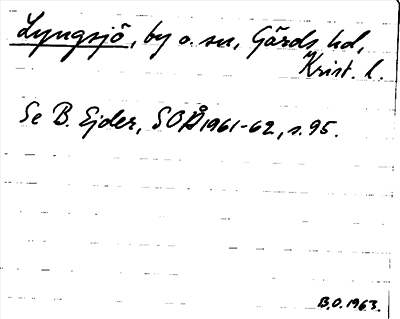 Lyngsjö, by o. sn, Gärds hd,
Krist. l.
Se B. Ejder, SOÅ 1961-62, s. 95.
B.O. 1963.